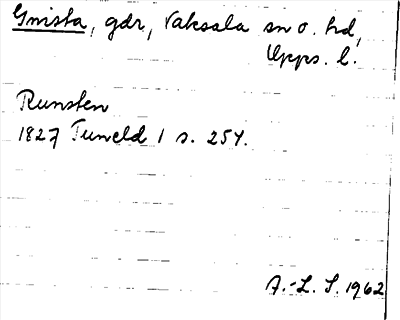 Gnista, gdr, Vaksala sn o. hd,
Upps. l.
Runsten
1827 Tuneld 1 s. 254.
A.-L. S. 1962